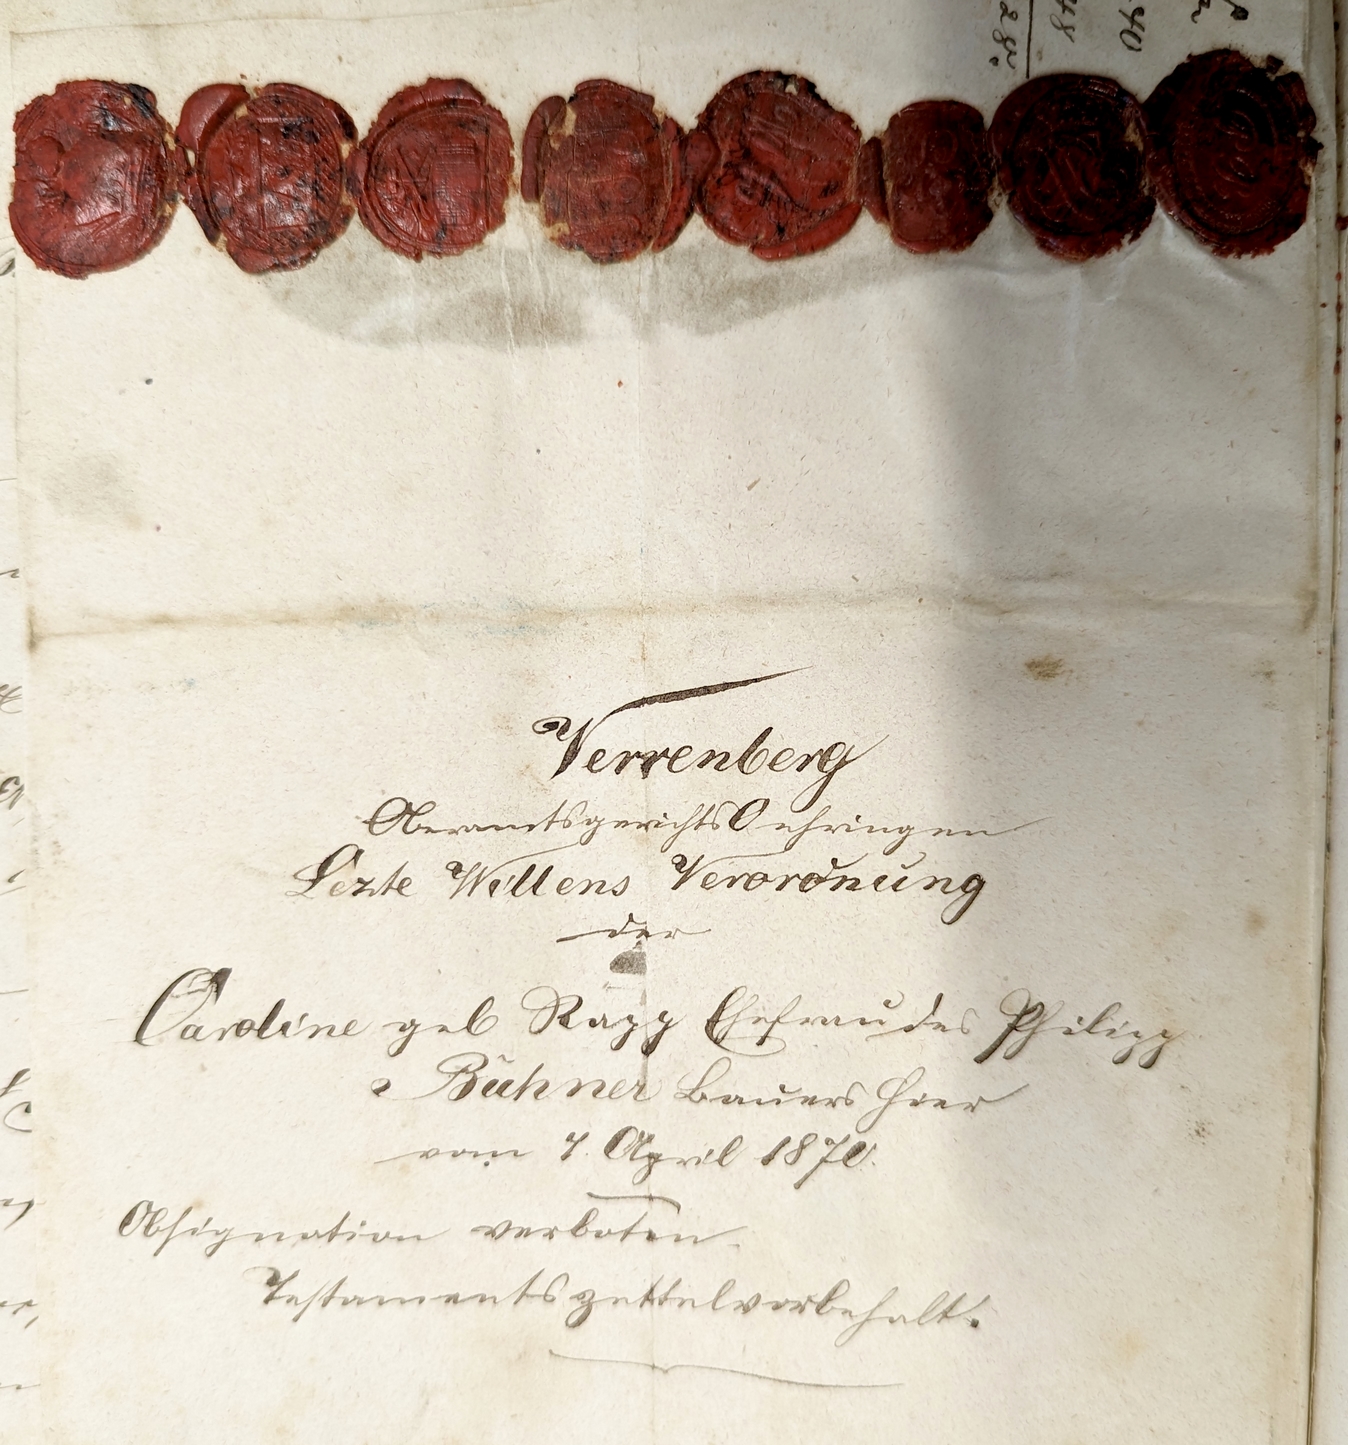 Verrenberg
Oberamtsgerichts Oehringen
Lezte Willens Verordnung
der
Caroline geb Rapp Ehefrau des Philipp
Bühner Bauers hier
vom 7. April 1870.
Obsignation verboten.
Testamentszettelvorbehalt.